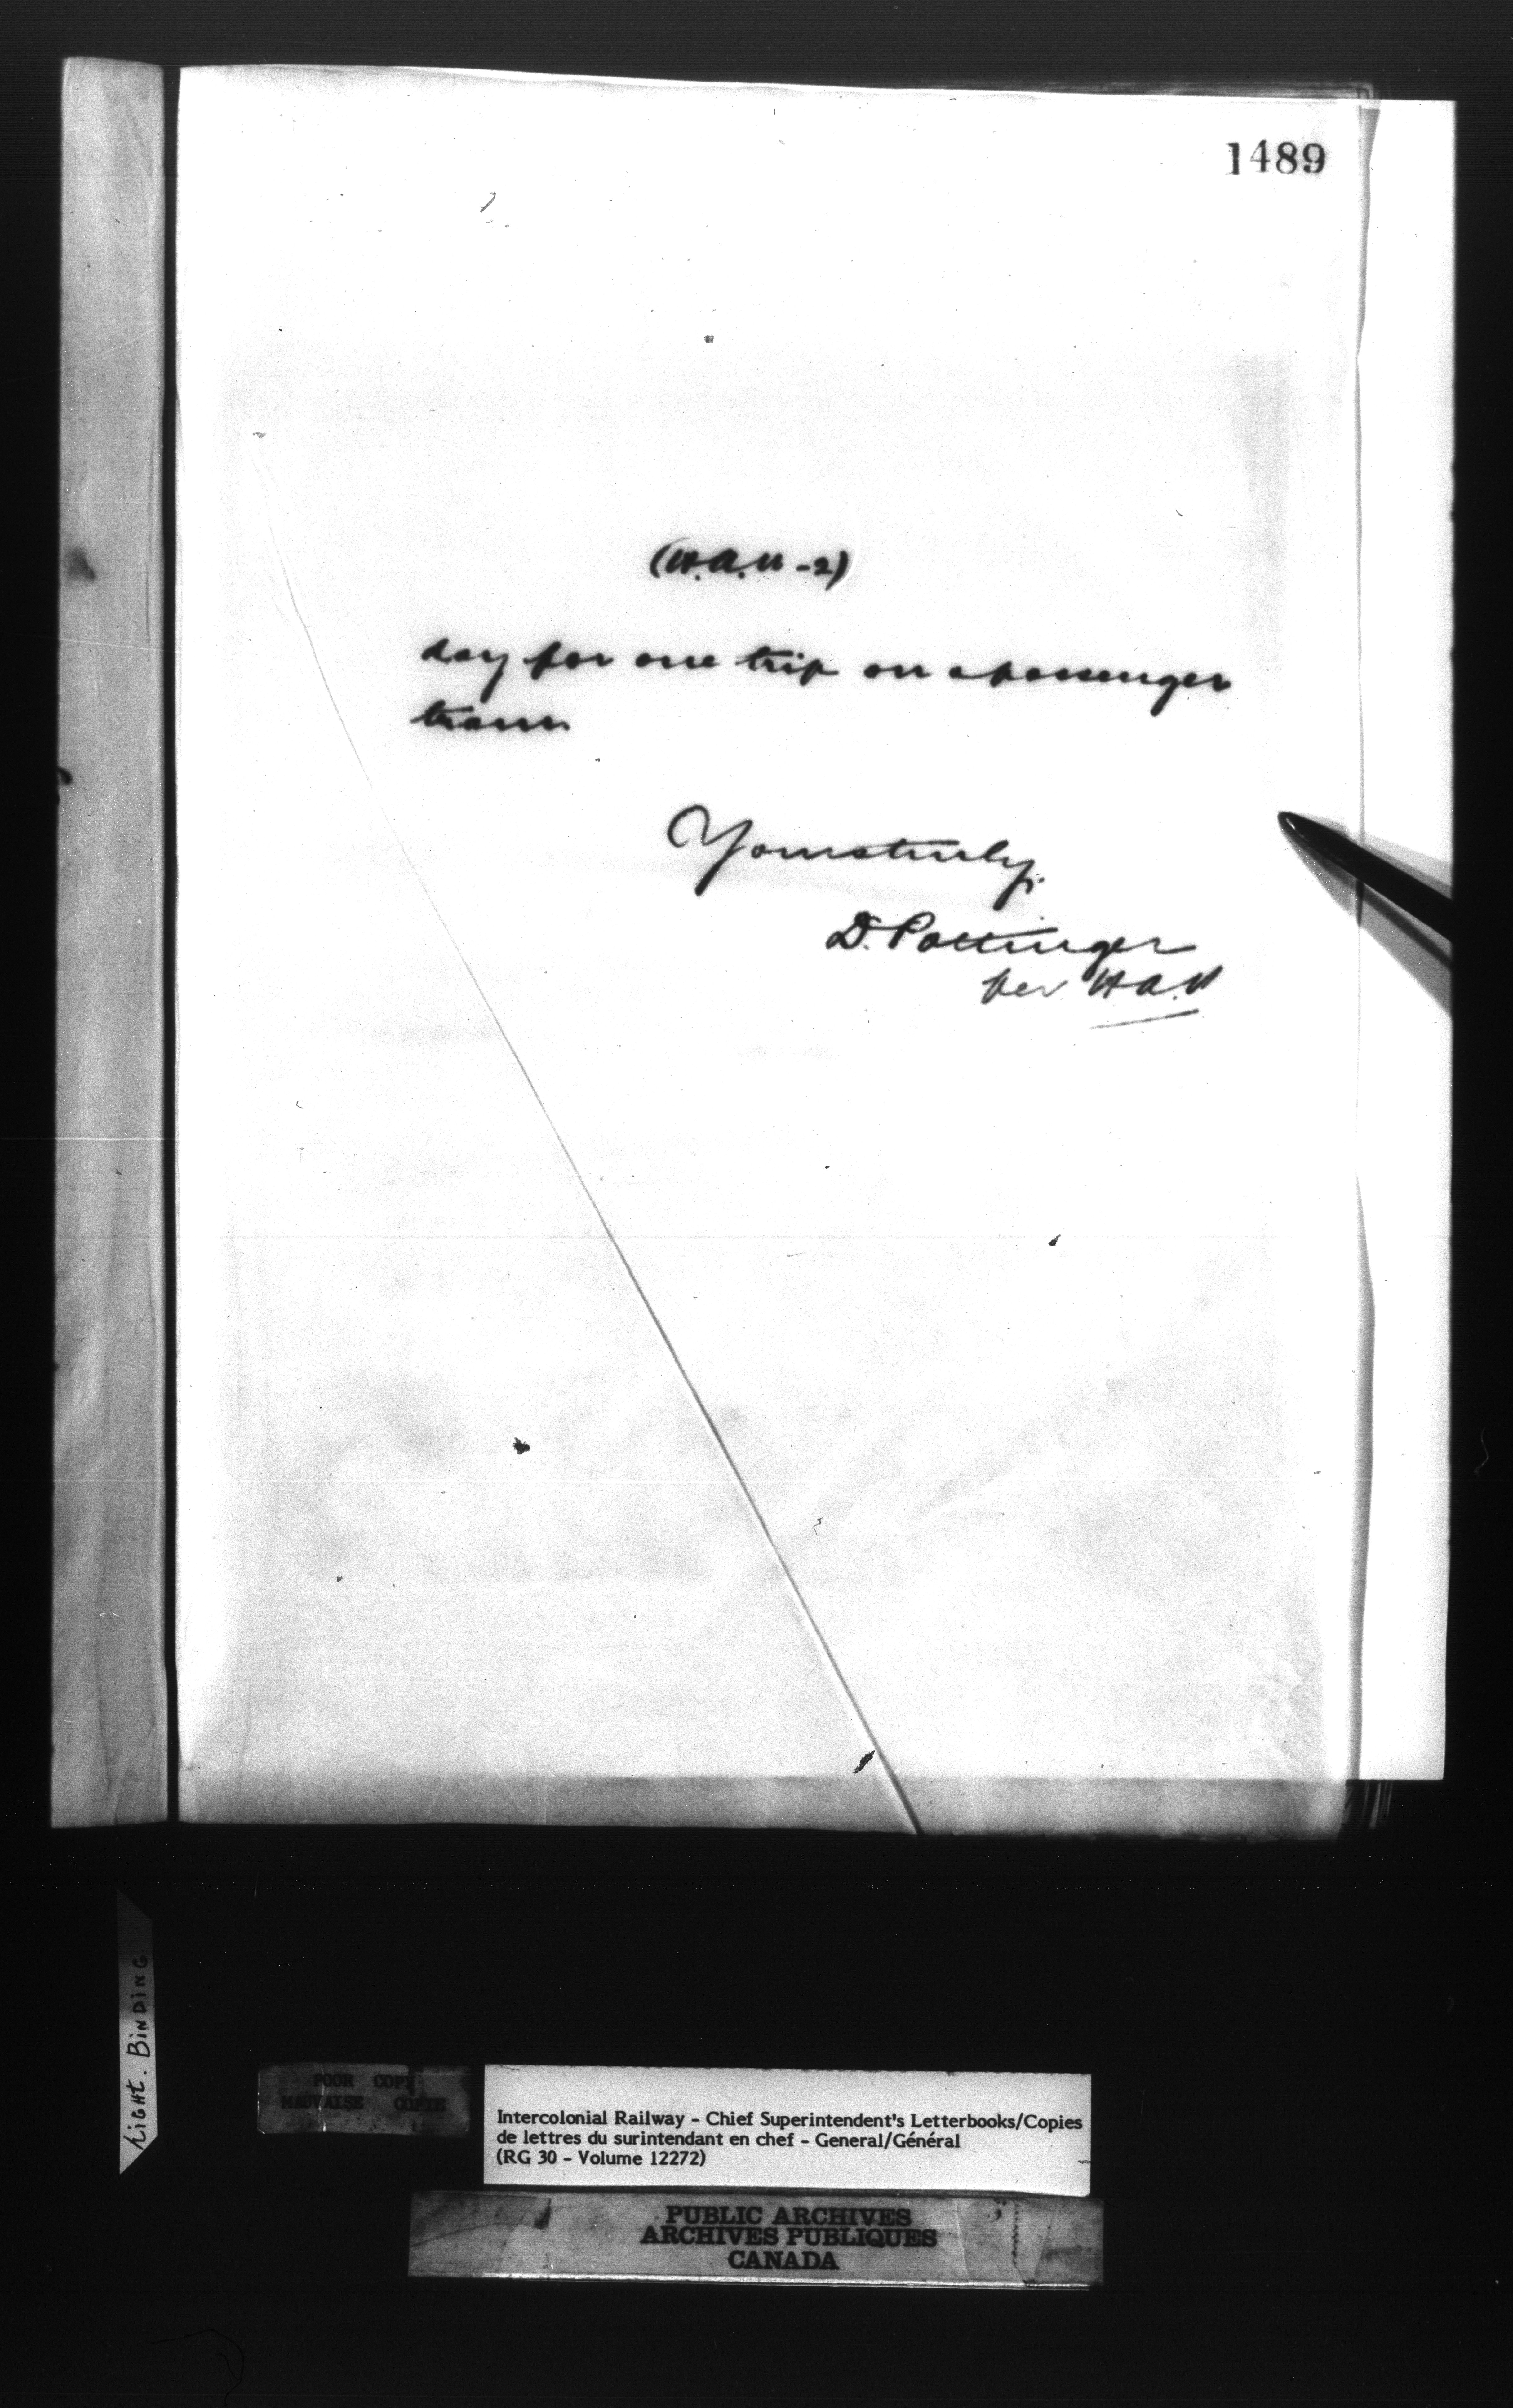 1489
(H.A.W-2)
day for one trip on a passenger
train.
Yours truly,
D. Pottinger
per H A.W
LIGHT. BINDING
POOR COPY
MAUVAISE COPIE
Intercolonial Railway - Chief Superintendent's Letterbooks/Copies
de lettres du surintendant en chef - General/Général
(RG 30 - Volume 12272)
PUBLIC ARCHIVES
ARCHIVES PUBLIQUES
CANADA